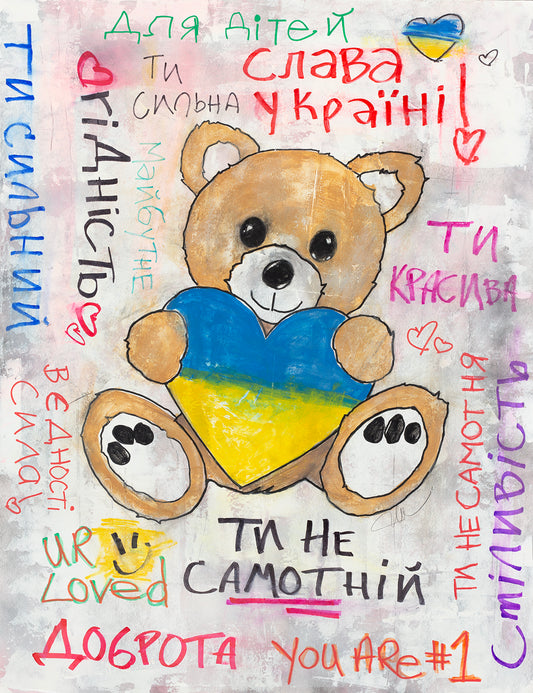 для дітей
ти сильний
гідність
ти
сильна
слава
україні!
майбутнє
ти
красива
в єдності
сила!
ти не самотня
сміливість
UR
Loved
ти не
самотній
доброта
YOU ARe #1